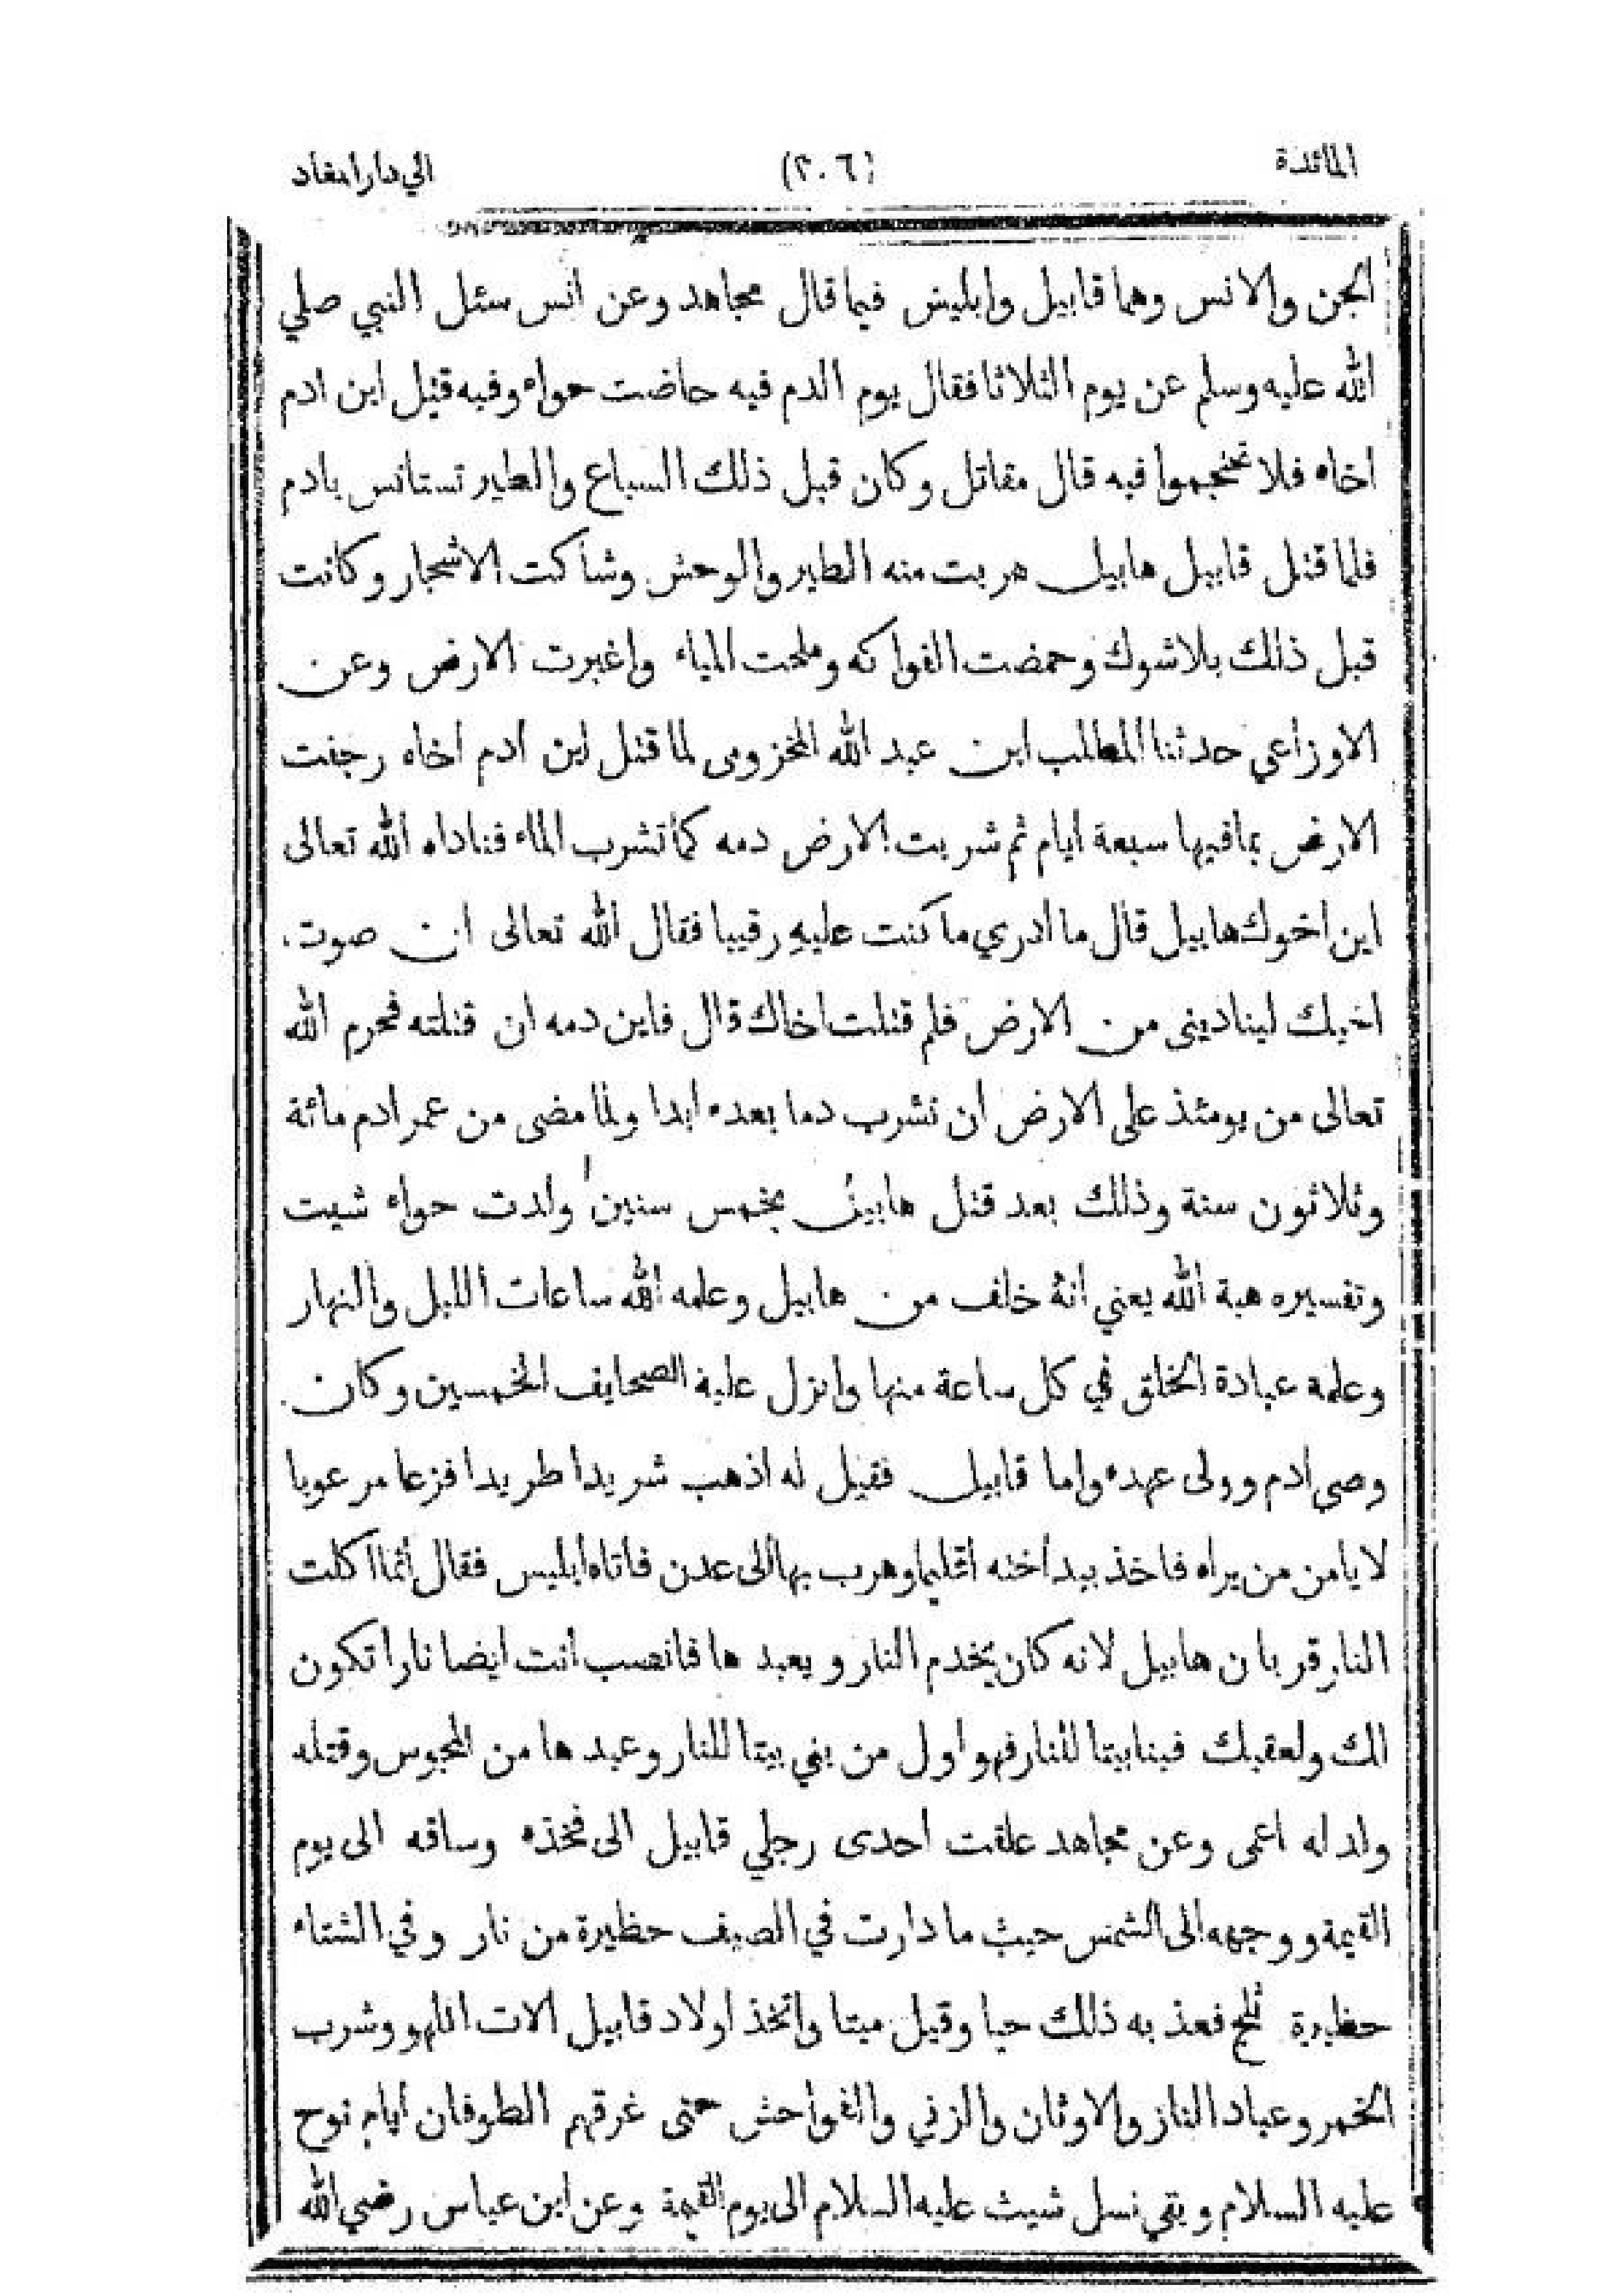 المائدة (٢٠٦) الي دار امغاد
الجن والانس وهما قابيل وابليس فيما قال مجاهد وعن انس سئل النبي صلي
الله عليه وسلم عن يوم الثلاثا فقال يوم الدم فيه حاضت حواء وفيه قتل ابن ادم
اخاه فلا تحتجموا فيه قال مقاتل وكان قبل ذلك السباع والطير تستانس بادم
فلما قتل قابيل هابيل هربت منه الطير والوحش وشاكت الاشجار وكانت
قبل ذلك بلا شوك وحمضت الفواكه وملحت المياه واغبرت الارض وعن
الاوزاعي حدثنا المطلب ابن عبد الله المخزومى لما قتل ابن آدم اخاه رجفت
الارض بما فيها سبعة ايام ثم شربت الارض دمه كما تشرب الماء فناداه الله تعالى
اين أخوك هابيل قال ما أدري ما كنت عليهِ رقيبا فقال الله تعالى ان صوت
اخيك ليناديني من الارض فلم قتلت اخاك قال فاين دمه ان قتلته فحرم الله
تعالى من يومئذ على الارض ان تشرب دما بعده ابدا ولما مضى من عمر ادم مائة
وثلاثون سنة وذلك بعد قتل هابيل بخمس سنين ولدت حواء شيت
وتفسيره هبة الله يعني انهُ خلف من هابيل وعلمه الله ساعات الليل والنهار
وعلمه عبادة الخلق في كل ساعة منها وانزل عليه الصحايف الخمسين وكان
وصي ادم وولى عهده واما قابيل فقيل له اذهب شريدا طريدا فزعا مرعوبا
لا يامن من يراه فاخذ بيد أخته اقليما وهرب بها الى عدن فأتاه ابليس فقال انما اكلت
النار قربان هابيل لانه كان يخدم النار ويعبد ها فانصب أنت ايضا نارا تكون
لك ولعقبك فبنا بيتا للنار فهو اول من بني بيتا للنار وعبد ها من المجوس وقتله
ولد له اعمى وعن مجاهد علقت احدى رجلي قابيل الى فخذه وساقه الى يوم
القيمة ووجهه الى الشمس حيث ما دارت في الصيف حظيرة من نار وفي الشتاء
حظيرة ثلج فعذ به ذلك حيا وقيل ميتا واتخذ اولاد قابيل الات اللهو وشرب
الخمر وعباد النار والاوثان والزني والفواحش حتى غرقهم الطوفان ايام نوح
عليه السلام وبقي نسل شيث عليه السلام الى يوم القيمة وعن ابن عباس رضي الله